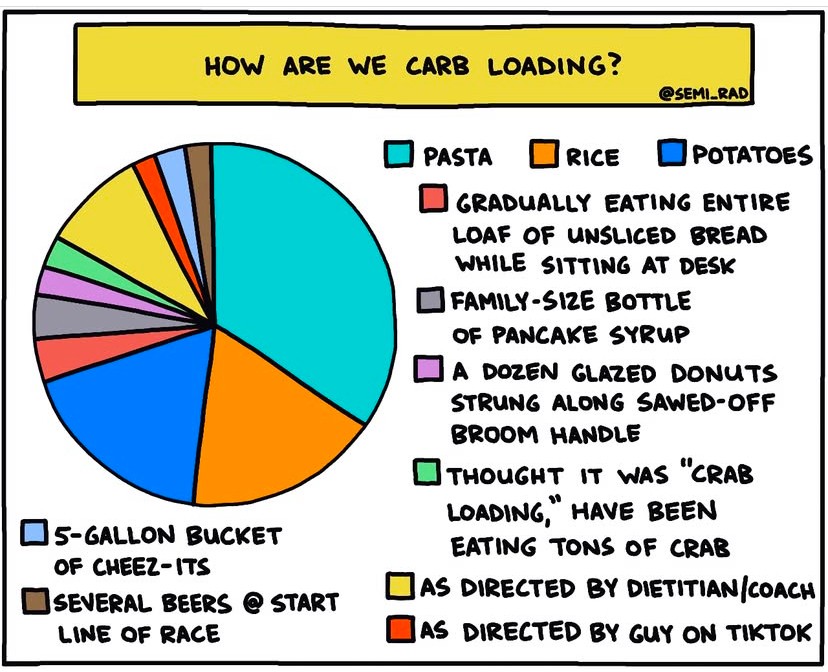 HOW ARE WE CARB LOADING?
@SEMI_RAD
PASTA RICE POTATOES
GRADUALLY EATING ENTIRE
LOAF OF UNSLICED BREAD
WHILE SITTING AT DESK
FAMILY-SIZE BOTTLE
OF PANCAKE SYRUP
A DOZEN GLAZED DONUTS
STRUNG ALONG SAWED-OFF
BROOM HANDLE
THOUGHT IT WAS "CRAB
LOADING," HAVE BEEN
EATING TONS OF CRAB
AS DIRECTED BY DIETITIAN/COACH
AS DIRECTED BY GUY ON TIKTOK
5-GALLON BUCKET
OF CHEEZ-ITS
SEVERAL BEERS @ START
LINE OF RACE